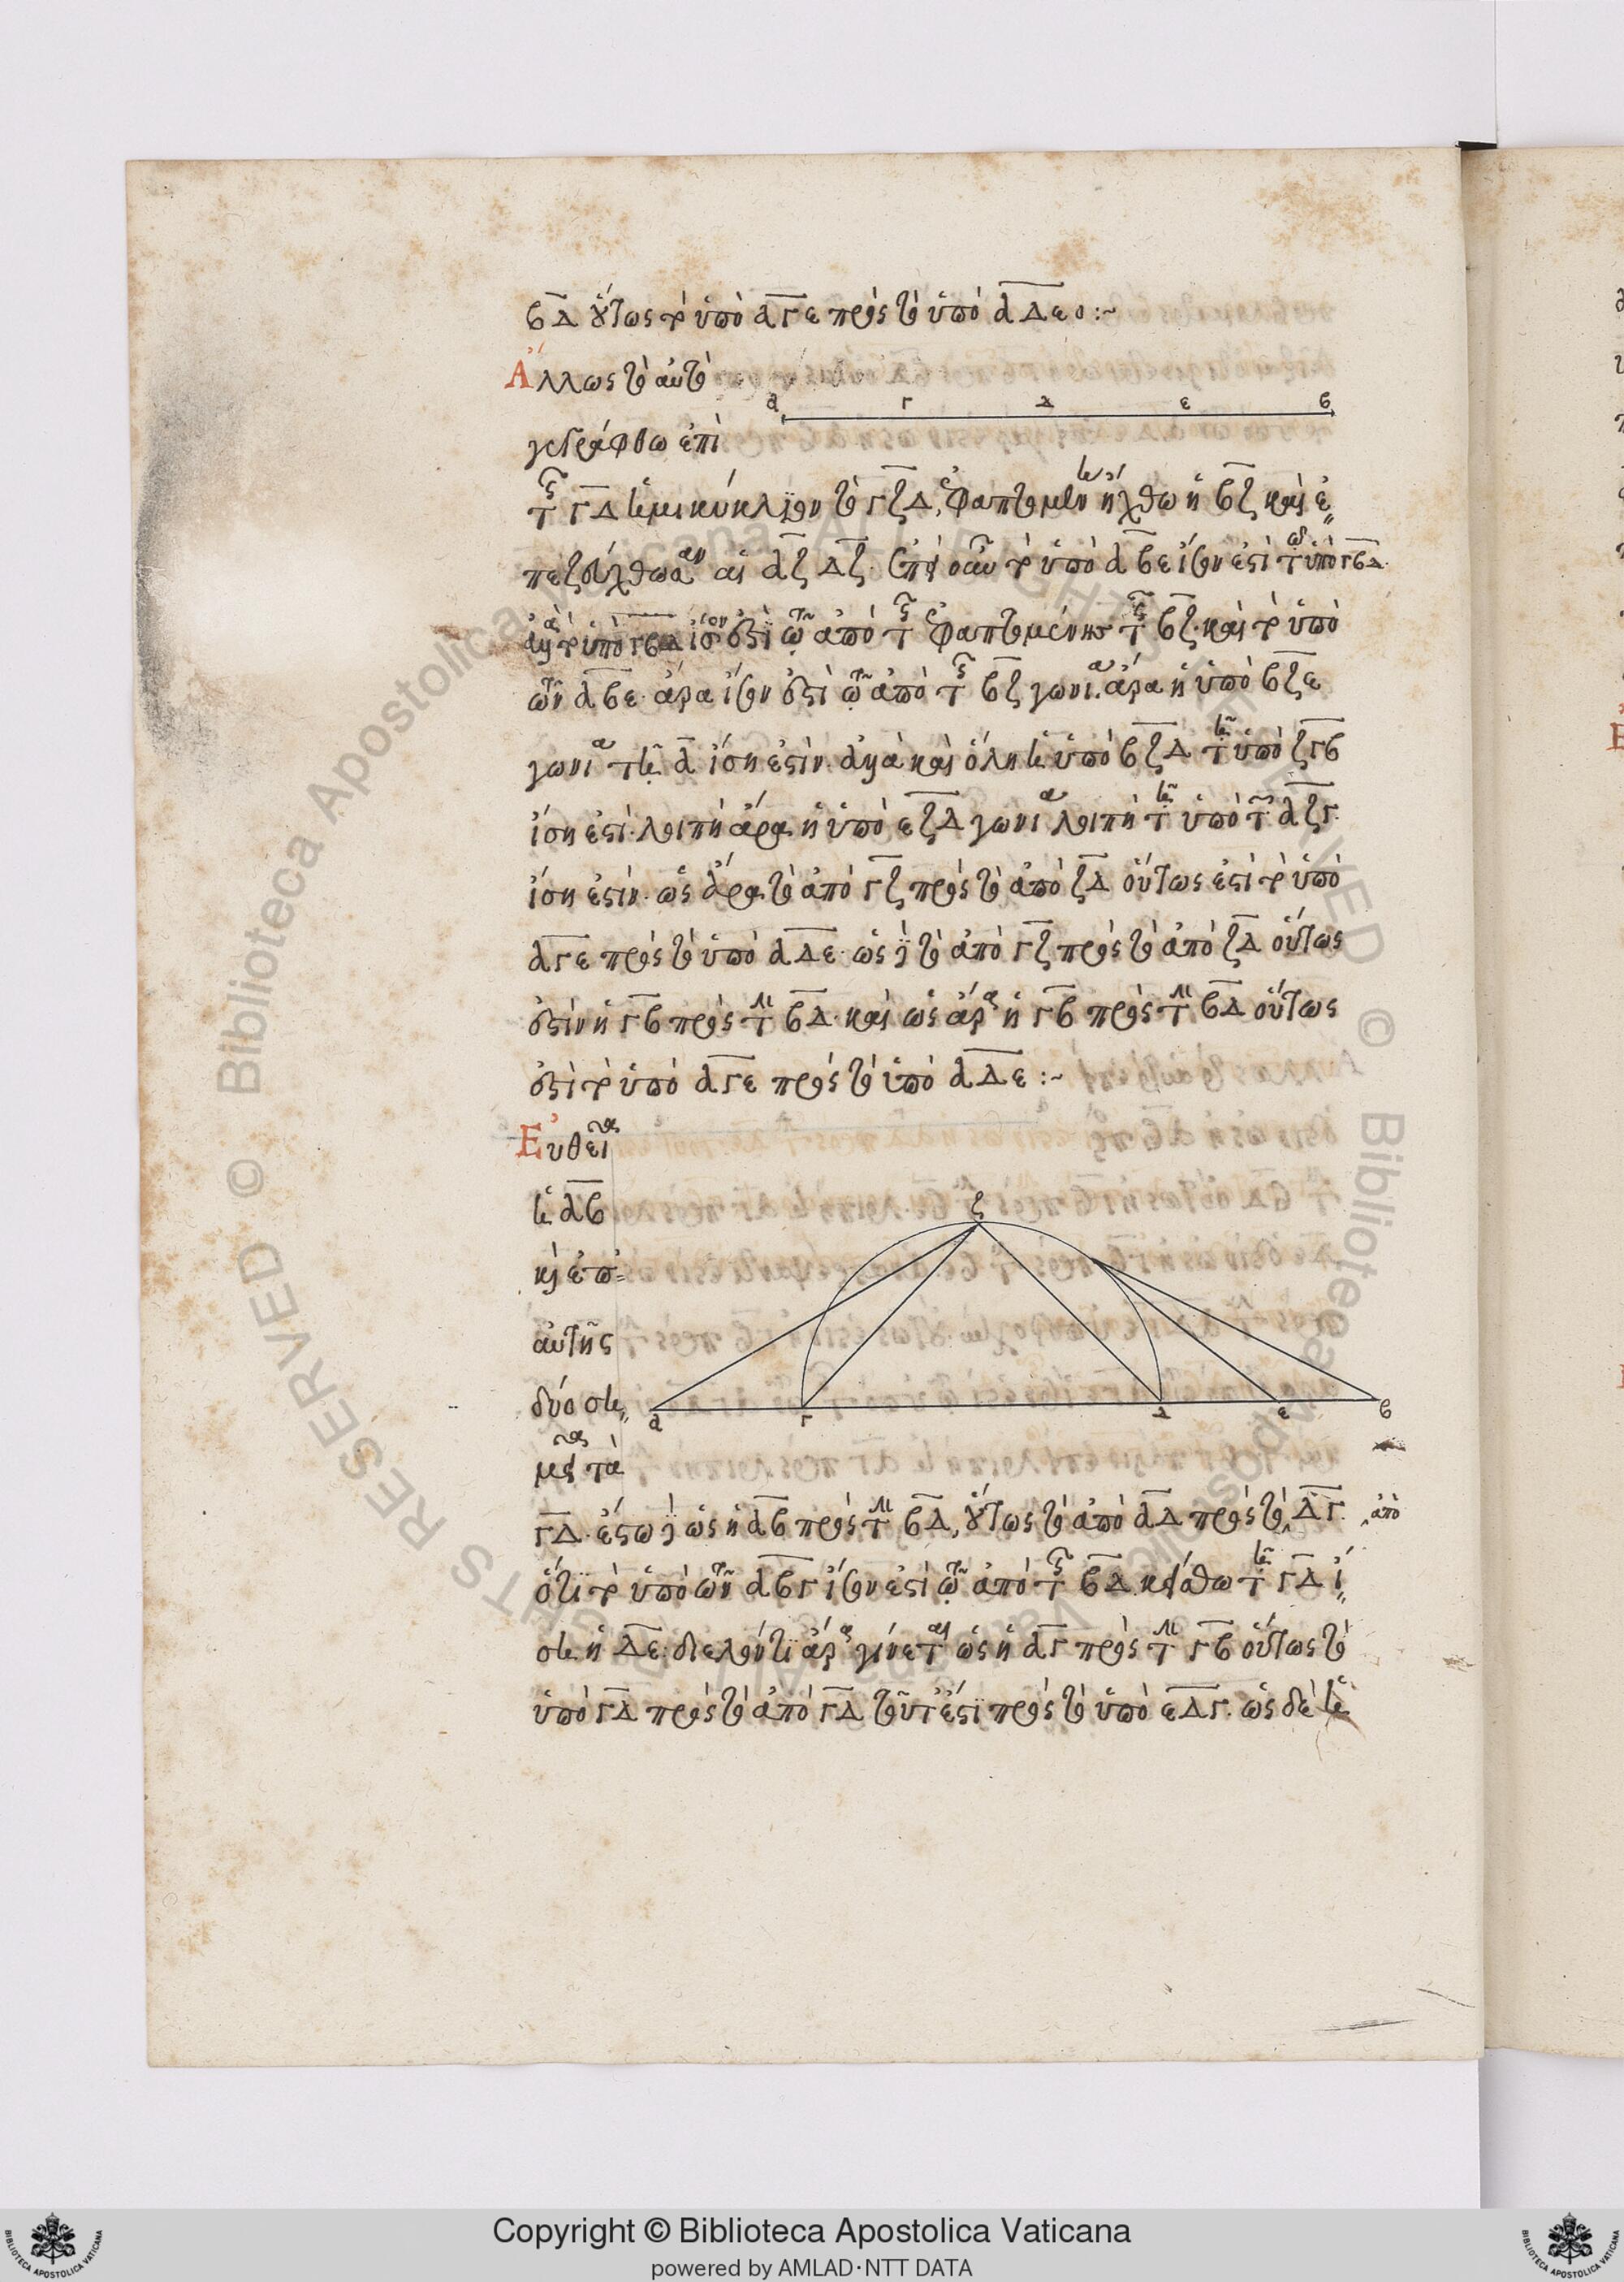 ΒΔ οὕτως τὸ ὑπὸ ΑΓΕ πρὸς τὸ ὑπὸ ΑΔΕ :~
Ἄλλως τὸ αὐτὸ
α Γ Δ ε β
γεγράφθω ἐπὶ
τῆς ΓΔ ἡμικύκλιον τὸ ΓΖΔ, ἐφαπτομένη ἤχθω ἡ ΒΖ καὶ ἐ
πεζεύχθωσαν αἱ ΑΖ ΔΖ. ἐπεὶ οὖν τὸ ὑπὸ ΑΒΕ ἴσον ἐστὶ τῷ ὑπὸ ΓΒΔ
ἀλλὰ τὸ ὑπὸ ΓΒΔ ἴσον ἐστὶ τῷ ἀπὸ τῆς ἐφαπτομένης τῆς ΒΖ. καὶ τὸ ὑπὸ
τῶν ΑΒΕ ἄρα ἴσον ἐστὶ τῷ ἀπὸ τῆς ΒΖ γωνία ἄρα ἡ ὑπὸ ΒΖΕ
γωνία τῇ Α ἴση ἐστὶν. ἀλλὰ καὶ ὅλη ἡ ὑπὸ ΒΖΔ τῇ ὑπὸ ΖΓΒ
ἴση ἐστὶ. λοιπὴ ἄρα ἡ ὑπὸ ΕΖΔ γωνία λοιπῇ τῇ ὑπὸ τῶν ΑΖΓ
ἴση ἐστὶν. ὡς ἄρα τὸ ἀπὸ ΓΖ πρὸς τὸ ἀπὸ ΖΔ οὕτως ἐστὶ τὸ ὑπὸ
ΑΓΕ πρὸς τὸ ὑπὸ ΑΔΕ. ὡς δὲ τὸ ἀπὸ ΓΖ πρὸς τὸ ἀπὸ ΖΔ οὕτως
ἐστὶν ἡ ΓΒ πρὸς τὴν ΒΔ. καὶ ὡς ἄρα ἡ ΓΒ πρὸς τὴν ΒΔ οὕτως
ἐστὶ τὸ ὑπὸ ΑΓΕ πρὸς τὸ ὑπὸ ΑΔΕ :~
Εὐθεῖα
ἡ ΑΒ
καὶ ἐπ
αὐτῆς
δύο ση
μεῖα τὰ
ζ
α Γ Δ ε β
ΓΔ. ἔστω δὲ ὡς ἡ ΑΒ πρὸς τὴν ΒΔ, οὕτως τὸ ἀπὸ ΑΔ πρὸς τὸ ΔΓ. ἀπὸ
ὅτι τὸ ὑπὸ τῶν ΑΒΓ ἴσον ἐστὶ τῷ ἀπὸ τῆς ΒΔ. κείσθω τῇ ΓΔ ἴ
ση ἡ ΔΕ. διελόντι ἄρα γίνεται ὡς ἡ ΑΓ πρὸς τὴν ΓΒ οὕτως τὸ
ὑπὸ ΓΔ πρὸς τὸ ἀπὸ ΓΔ τουτέστι πρὸς τὸ ὑπὸ ΕΔΓ. ὡς δὲ ἡ
Copyright © Biblioteca Apostolica Vaticana
powered by AMLAD·NTT DATA